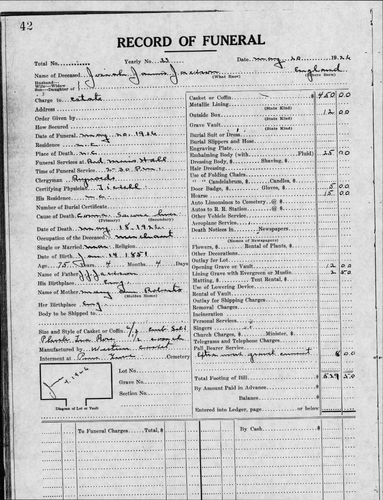 42
RECORD OF FUNERAL
Total No. Yearly No. 33 Date May 20 1926
Name of Deceased Jackson England
(What Race) (Where Born)
Husband—
Wife—Widow
Son—Daughter of
Charge to estate
Address
Order Given by
How Secured
Date of Funeral May 20, 1926
Residence
Funeral Services at Hall
Time 2-30 P.m.
Clergyman
Certifying Physician
His Residence
Number of Burial Certificate
Cause of Death
(Primary) (Secondary)
Date of Death May 18, 1926
Occupation of the Deceased merchant
Single or Married Religion
Date of Birth Jan 14 1851
Age 75 Years 4 Months 4 Days
Name of Father Jackson
His Birthplace Eng
Name of Mother Mary Roberts
(Maiden Name)
Her Birthplace Eng
Body to be Shipped to
Size and Style of Casket or Coffin
Manufactured by Western Casket
Interment at Cemetery
Lot No.
Grave No.
Section No.
Diagram of Lot or Vault
Casket or Coffin $ 450 00
Metallic Lining
(State Kind)
Outside Box 12 00
(State Kind)
Grave Vault
(State Kind)
Burial Suit or Dress
Burial Slippers and Hose
Engraving Plate
Embalming Body (with Fluid) 25 00
Dressing Body, $ Shaving, $
Hair Dressing
Use of Folding Chairs
" " Candelabrum, $ Candles, $
Door Badge, $ Gloves, $ 5 00
Hearse 15 00
Auto Limousines to Cemetery @ $
Autos to R. R. Station @ $
Other Vehicle Service
Aeroplane Service
Death Notices in Newspapers
(Names of Newspapers)
Flowers, $ Rental of Plants, $
Other Decorations
Outlay for Lot
Opening Grave or Vault 12 00
Lining Grave with Evergreen or Muslin 2 50
Matting, $ Tent Rental, $
Use of Lowering Device
Rental of Vault
Outlay for Shipping Charges
Removal Charges
Incineration
Personal Services
Singers
Church Charges, $ Minister, $
Telegrams and Telephone Charges
Pall Bearer Service
Extra grave cement 8 00
Total Footing of Bill $ 529 50
By Amount Paid in Advance
Balance
Entered into Ledger, page or below
To Funeral Charges $
By Cash $